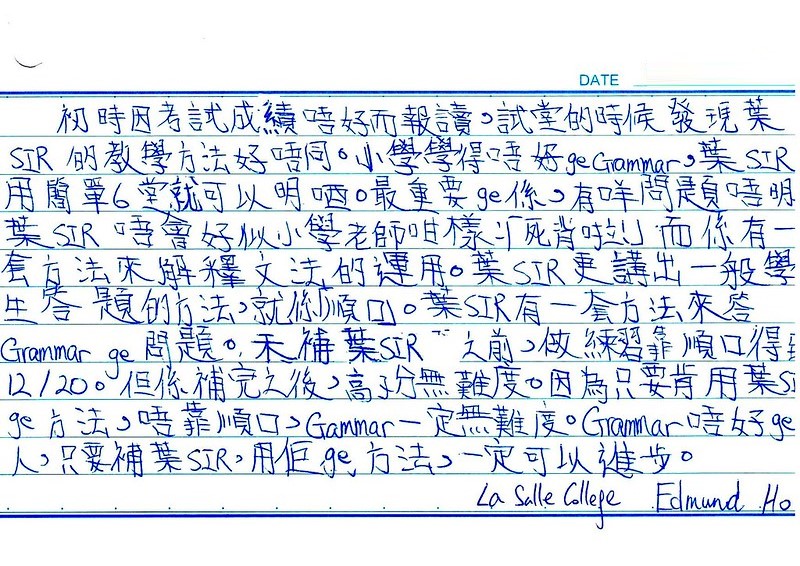 DATE
初時因考試成績唔好而報讀。試堂的時候發現葉
SIR 的教學方法好唔同。小學學得唔好ge Grammar，葉 SIR
用簡單6堂就可以明哂。最重要ge係，有咩問題唔明
葉 SIR 唔會好似小學老師咁樣：「死背啦！」而係有一
套方法來解釋文法的運用。葉SIR更講出一般學
生答題的方法，就係「順口」。葉SIR有一套方法來答
Grammar ge 問題。未補葉SIR之前，做練習靠順口得到
12/20。但係補完之後，高分無難度。因為只要肯用葉SI
ge 方法，唔靠順口，Gammar一定無難度。Grammar唔好ge
人，只要補葉SIR，用佢ge方法，一定可以進步。
La Salle College Edmund Ho